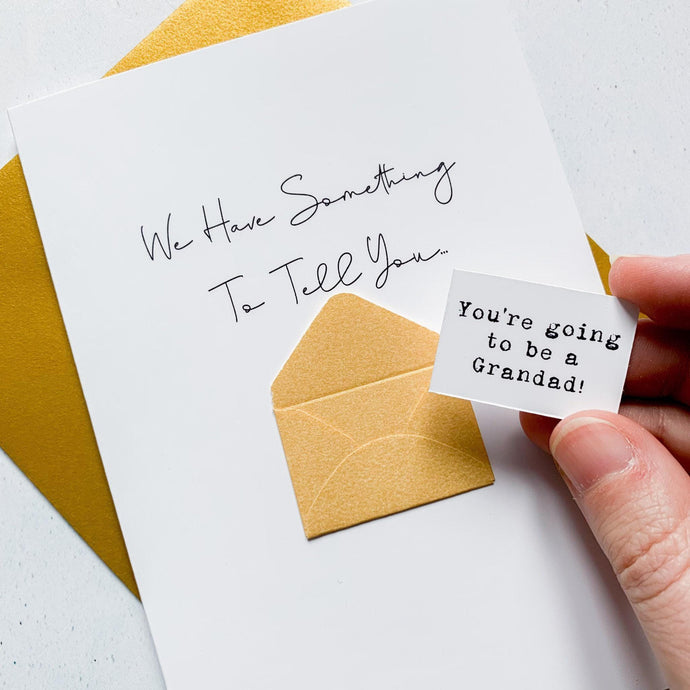 We Have Something
To Tell You...
You're going
to be a
Grandad!